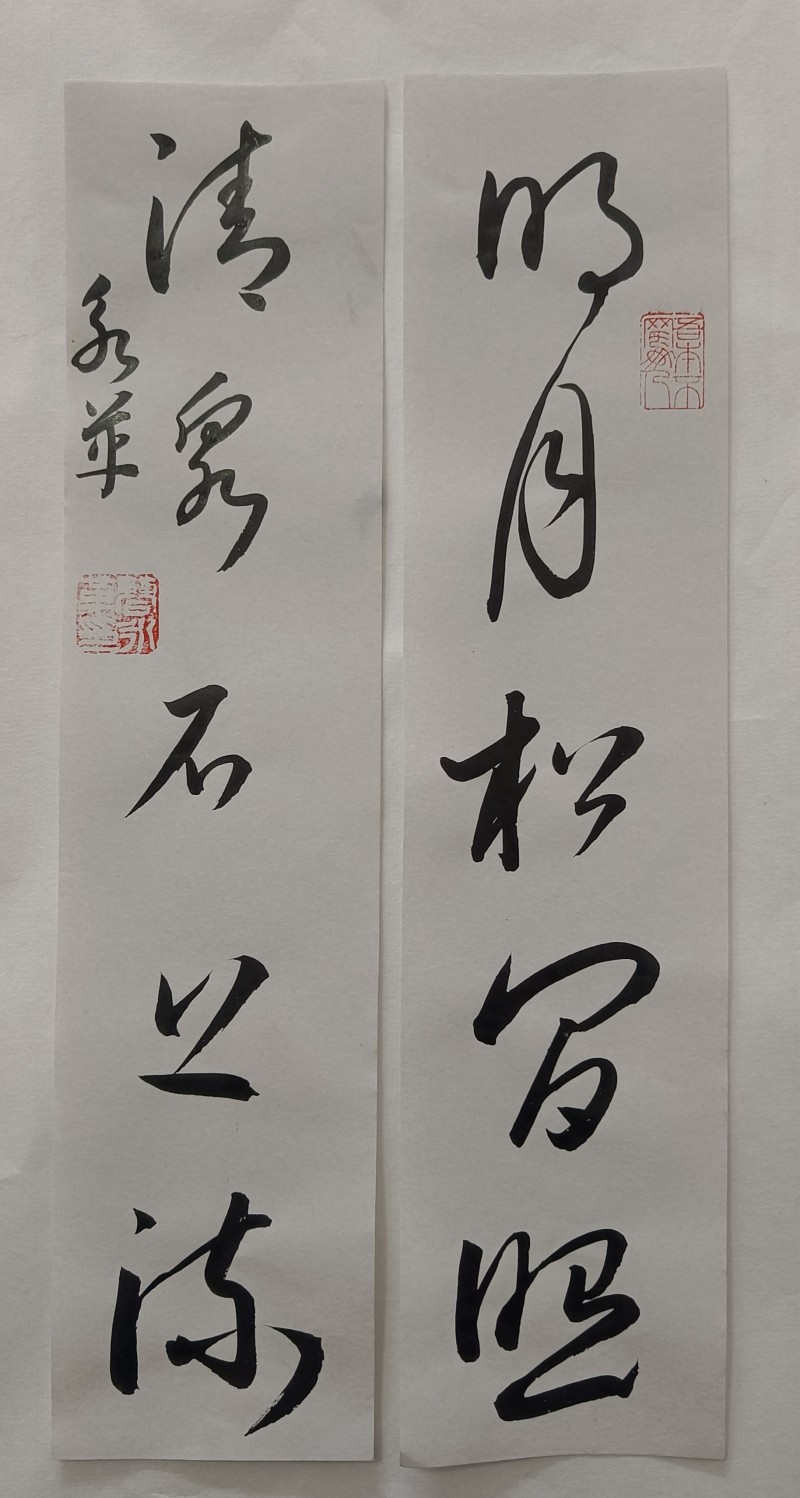 明月松間照
清泉石上流
永平